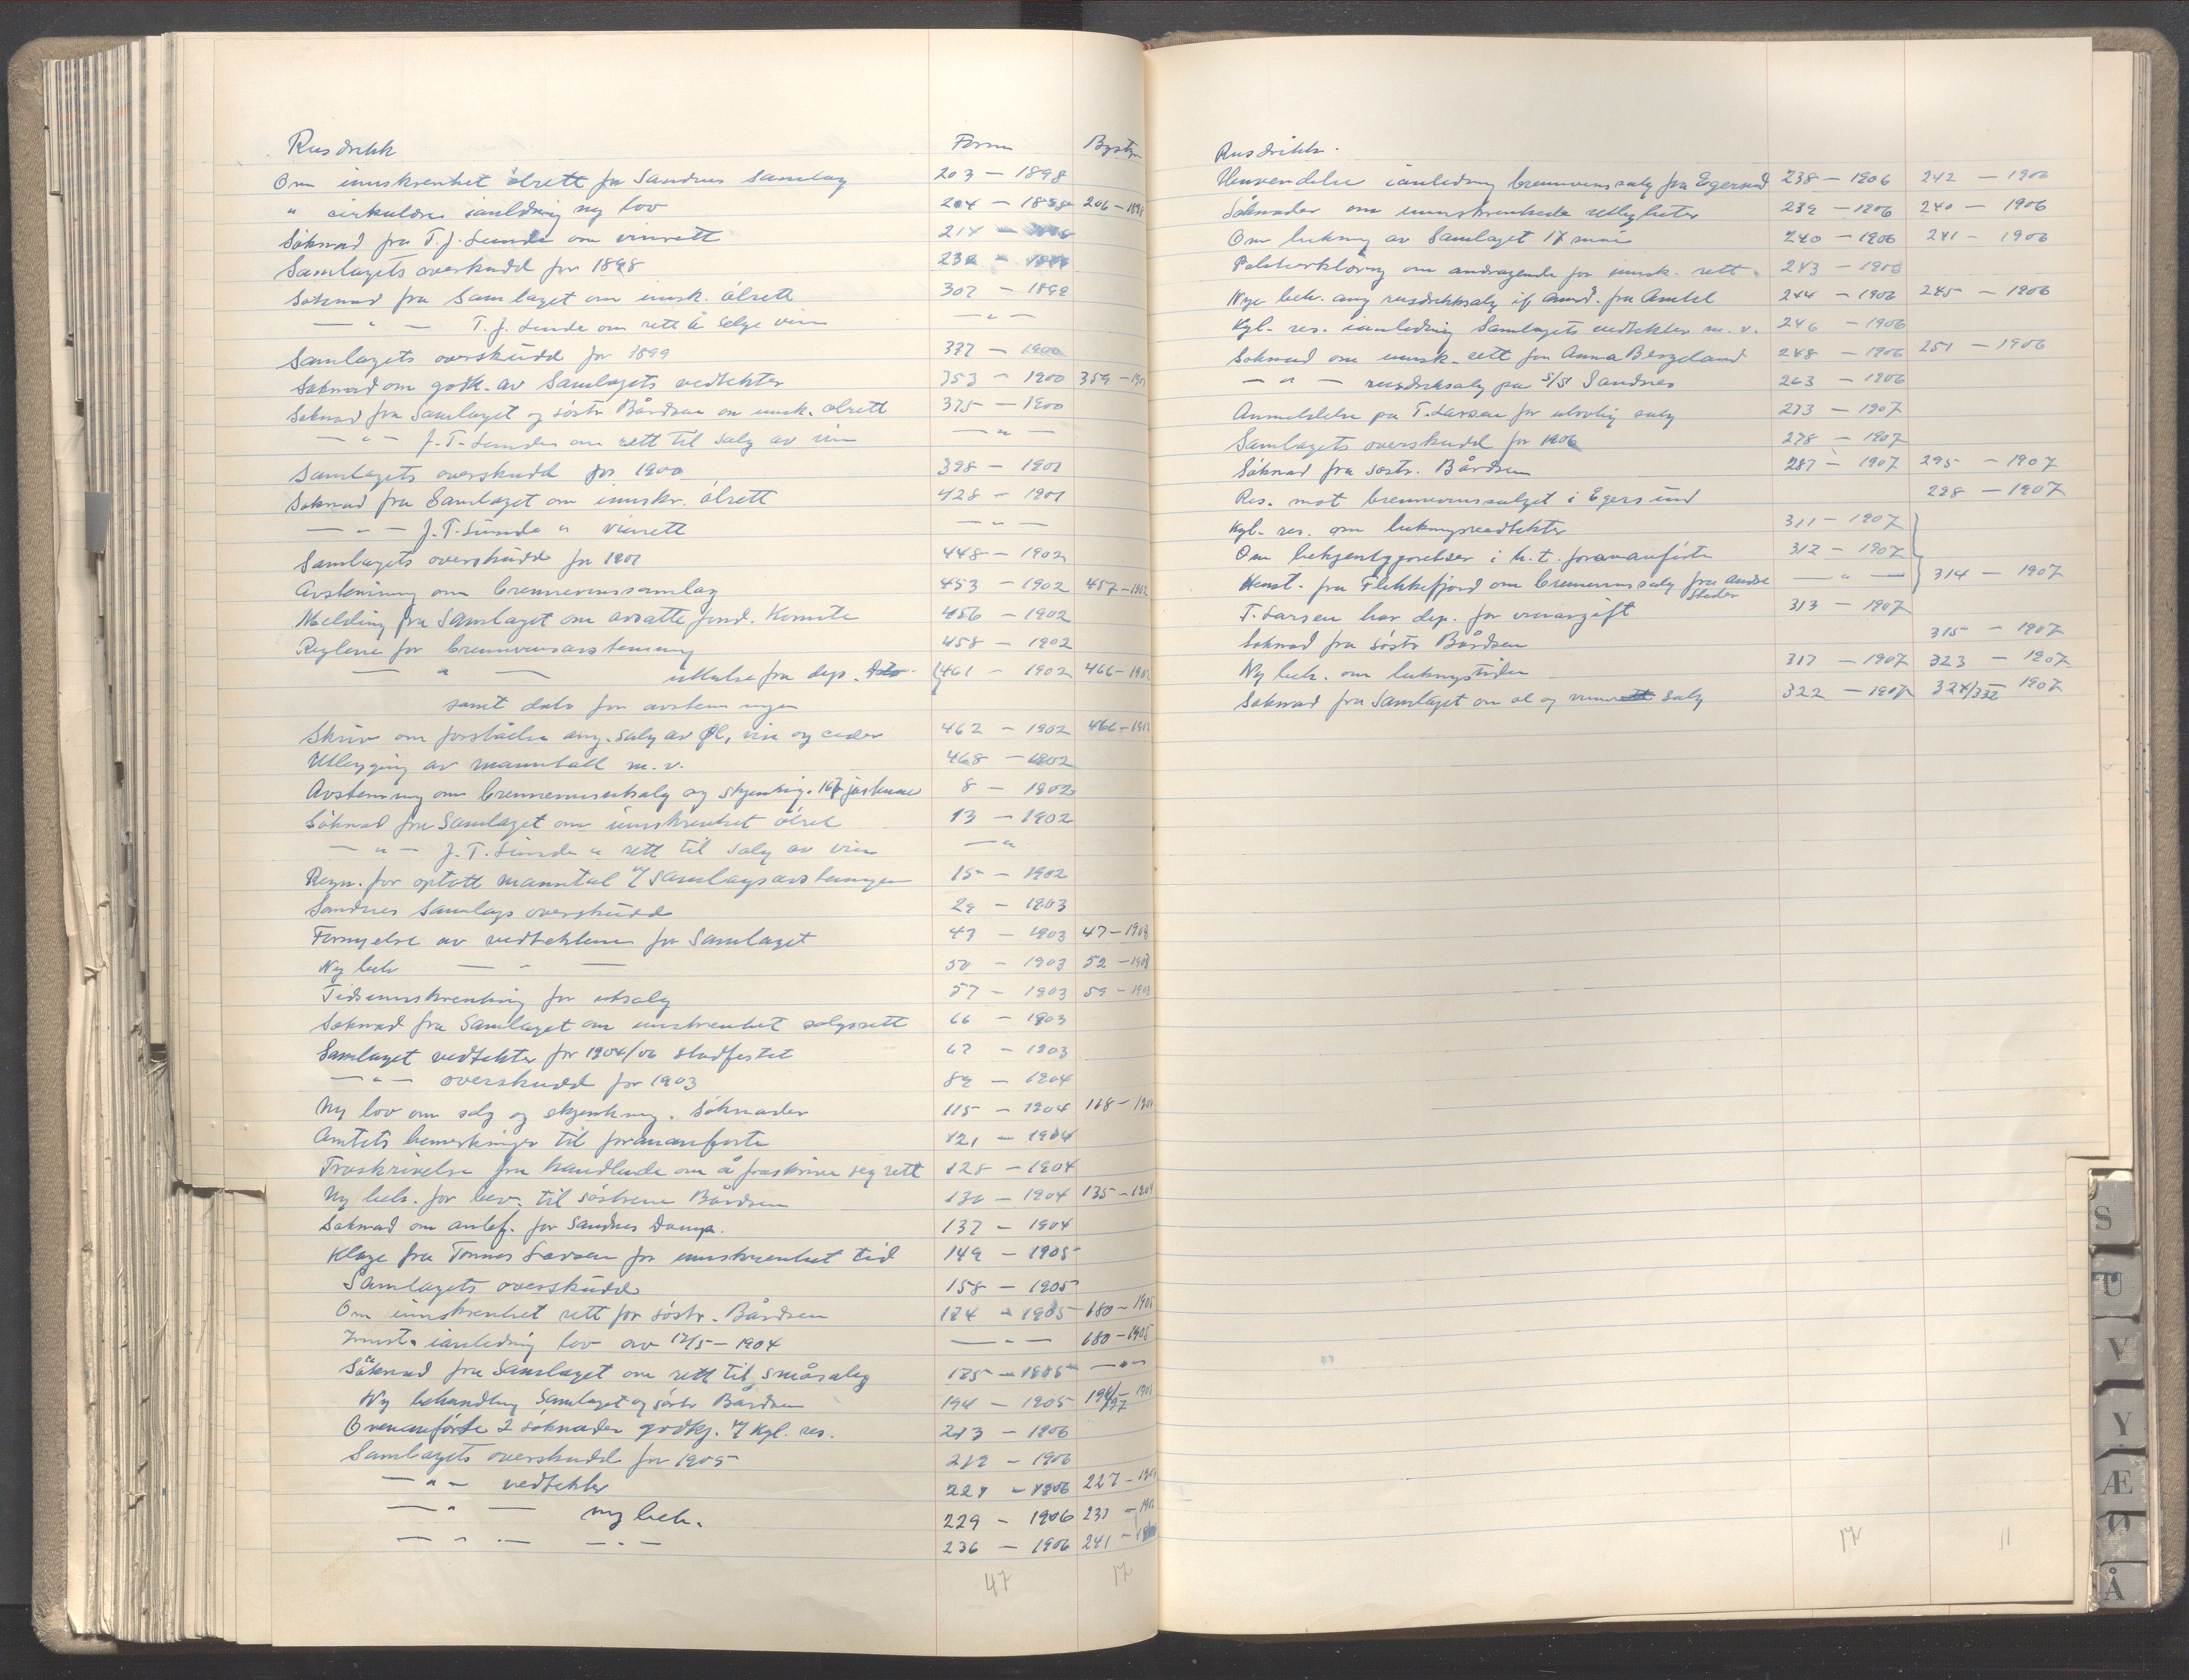 Rusdrikk Form Bystyr
Om innskrenket ølrett for Sandnes Samlag 203 — 1898
" cirkulære ianledning ny lov 204 — 1898 206 — 1898
Søknad fra T. J. Lunde om vinrett 214 —
Samlagets overskudd for 1898 232 —
Søknad fra Samlaget om innsk. ølrett 307 — 1899
— " — T. J. Lunde om rett å selge vin — " —
Samlagets overskudd for 1899 337 — 1900
Søknad om godk. av Samlagets vedtekter 353 — 1900 359 — 1900
Søknad fra Samlaget og søstr. Bårdsen om innsk. ølrett 375 — 1900
— " — J. T. Lunde om rett til salg av vin — " —
Samlagets overskudd for 1900 398 — 1901
Søknad fra Samlaget om innskr. ølrett 428 — 1901
— " — J. T. Lunde " vinrett — " —
Samlagets overskudd for 1901 448 — 1902
Avstemning om brennevinssamlag 453 — 1902 457 — 1902
Melding fra Samlaget om avsatte fond. Komite 456 — 1902
Reglene for brennevinsavstemning 458 — 1902
— " — uttalelse fra dep. 461 — 1902 466 — 1902
samt dato for avstemningen
Skriv om forståelse ang. salg av Øl, vin og cider 462 — 1902 466 — 1902
Utlegging av manntall m. v. 468 — 1902
Avstemning om brennevinsutsalg og skjenking. 8 — 1902
Søknad fra Samlaget om innskrenket ølrett 13 — 1902
— " — J. T. Lunde " rett til salg av vin — "
Regn. for optatt manntal v/ Samlagsavstemningen 15 — 1902
Sandnes Samlags overskudd 29 — 1903
Fornyelse av vedtektene for Samlaget 43 — 1903 47 — 1903
Ny beh — " — 50 — 1903 52 — 1903
Tidsinnskrenkning for utsalg 57 — 1903 59 — 1903
Søknad fra Samlaget om innskrenket salgsrett 66 — 1903
Samlaget vedtekter for 1904/06 stadfestet 67 — 1903
— " — overskudd for 1903 89 — 1904
Ny lov om salg og skjenkning. Søknader 115 — 1904 118 — 1904
Amtets bemerkninger til forananførte 121 — 1904
Fraskrivelse fra handlende om å fraskrive seg rett 128 — 1904
Ny beh. for bev. til søstrene Bårdsen 130 — 1904 135 — 1904
Søknad om anbef. for Sandnes Damp. 137 — 1904
Klage fra Tønnes Larsen for innskrenket tid 149 — 1905
Samlagets overskudd 158 — 1905
Om innskrenket rett for søstr. Bårdsen 174 — 1905 180 — 1905
Innst. ianledning lov av 17/5 — 1904 — " — 180 — 1905
Søknad fra Samlaget om rett til småsalg 175 — 1905 — " —
Ny behandling Samlaget og søstr Bårdsen 194 — 1905 196/197 — 1905
Ovenanførte 2 søknader godkj. v/ Kgl. res. 213 — 1906
Samlagets overskudd for 1905 219 — 1906
— " — vedtekter 221 — 1906 227 — 1906
— " — ny beh. 229 — 1906 231 — 1906
— " — — " — 236 — 1906 241 —
47 17
Rusdrikk.
Henvendelse ianledning brennevinssalg fra Egersund 238 — 1906 242 — 1906
Søknader om innskrenkede rettigheter 239 — 1906 240 — 1906
Om lukning av Samlaget 17 mai 240 — 1906 241 — 1906
Politierklæring om andragende for innsk. rett. 243 — 1906
Nye beh. ang rusdrikksalg if. anmd. fra Amtet 244 — 1906 245 — 1906
Kgl. res. ianledning Samlagets vedtekter m. v. 246 — 1906
Søknad om innsk. rett fra Anna Bergeland 248 — 1906 251 — 1906
— " — rusdrikksalg på S/S Sandnes 263 — 1906
Anmeldelse på T. Larsen for ulovlig salg 273 — 1907
Samlagets overskudd for 1906 278 — 1907
Søknad fra søstr. Bårdsen 287 — 1907 295 — 1907
Res. mot brennevinssalget i Egersund 298 — 1907
Kgl. res. om lukningsvedtekter 311 — 1907
Om bekjentgjørelser i h. t. forananførte 312 — 1907
Henst. fra Flekkefjord om brennevinssalg fra andre steder — " — 314 — 1907
T. Larsen har dep. for vinavgift 313 — 1907
Søknad fra søstr Bårdsen 315 — 1907
Ny beh. om lukningstiden 317 — 1907 323 — 1907
Søknad fra Samlaget om øl og vin salg 322 — 1907 324/332 1907
17 11
S
U
V
Y
Æ
Ø
Å